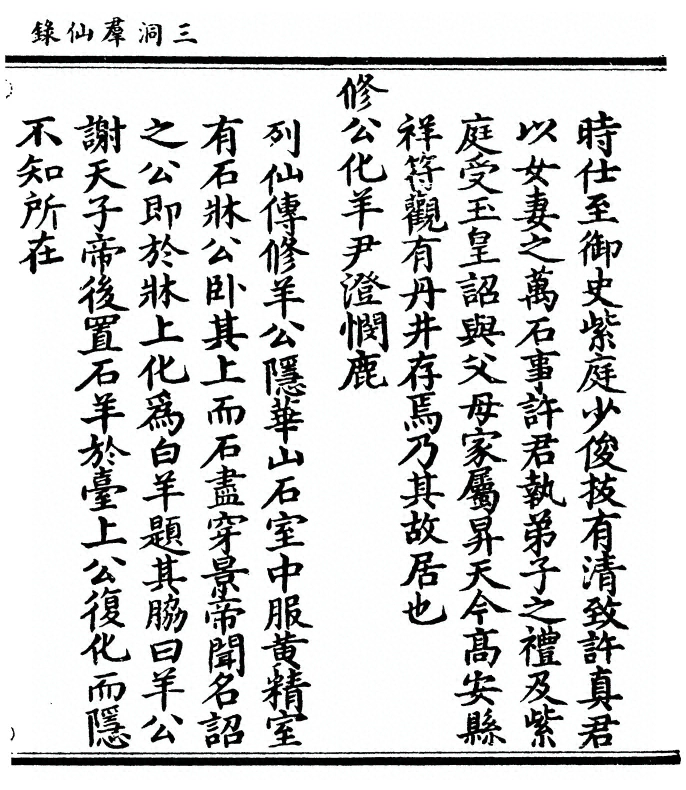 三洞羣仙錄
時仕至御史紫庭少俊技有清致許真君
以女妻之萬石事許君執弟子之禮及紫
庭受玉皇詔與父母家屬昇天今高安縣
祥符觀有丹井存焉乃其故居也
修公化羊尹澄憫鹿
列仙傳修羊公隱華山石室中服黄精室
有石牀公卧其上而石盡穿景帝聞名詔
之公即於牀上化爲白羊題其脇曰羊公
謝天子帝後置石羊於臺上公復化而隱
不知所在